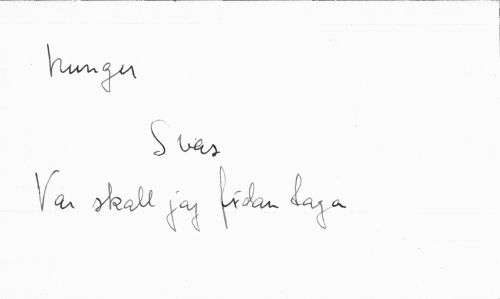 hunger
Svar
Var skall jag fidan taga